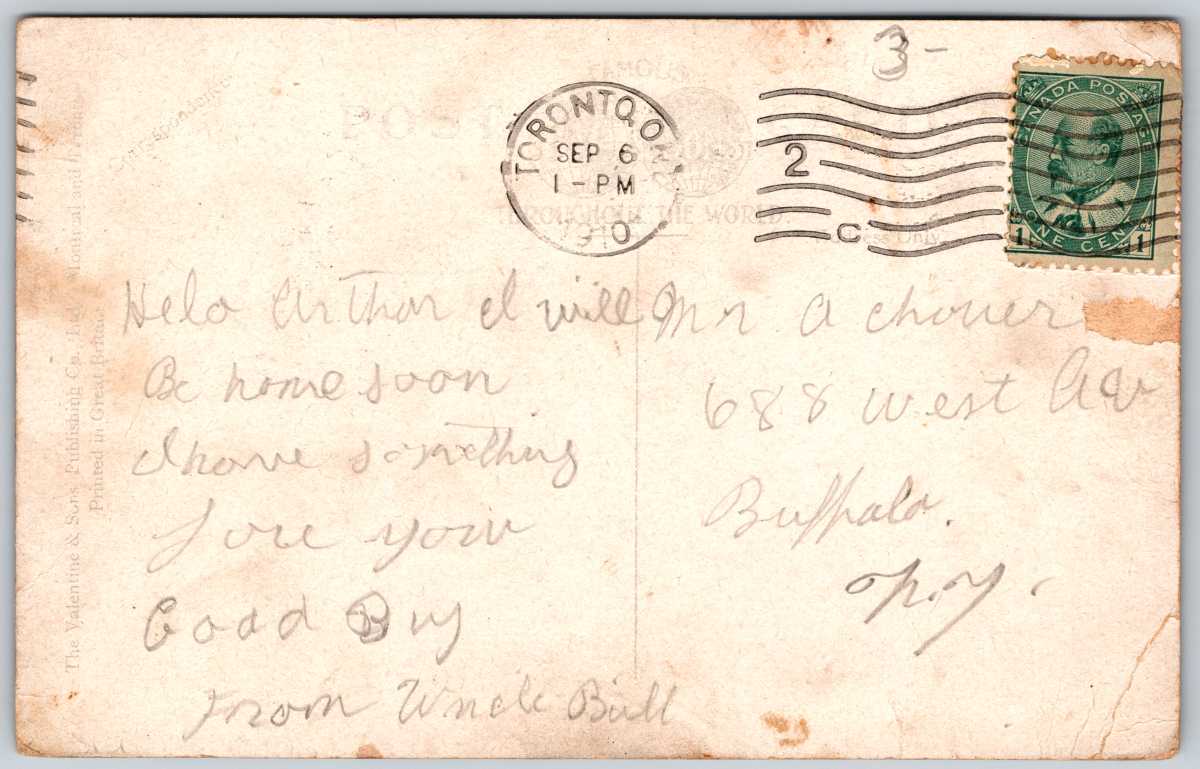 3-
FAMOUS
POST
THROUGHOUT THE WORLD.
Correspondence
TORONTO, ONT.
SEP 6
1-PM
1910
2
C
CANADA POSTAGE
1 ONE CENT 1
Helo Arthor I will
Be home soon
I have something
fore your
Good Buy
From Uncle Bill
Mr A
688 West Av
Buffalo.
N.Y.
The Valentine & Sons Publishing Co., Ltd., Montreal and Toronto.
Printed in Great Britain.